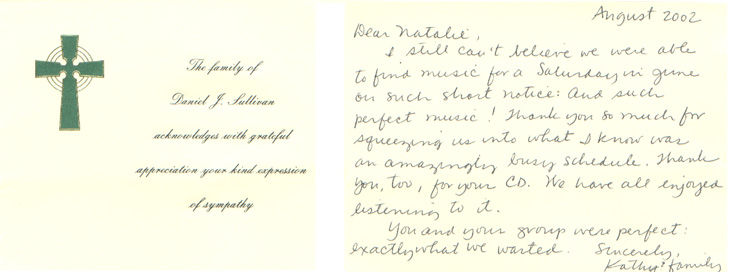 The family of
Daniel J. Sullivan
acknowledges with grateful
appreciation your kind expression
of sympathy
August 2002
Dear Natalie,
I still can't believe we were able
to find music for a Saturday in June
on such short notice: And such
perfect music! Thank you so much for
squeezing us into what I know was
an amazingly busy schedule. Thank
you, too, for your CD. We have all enjoyed
listening to it.
You and your group were perfect:
exactly what we wanted. Sincerely,
Kathy & family